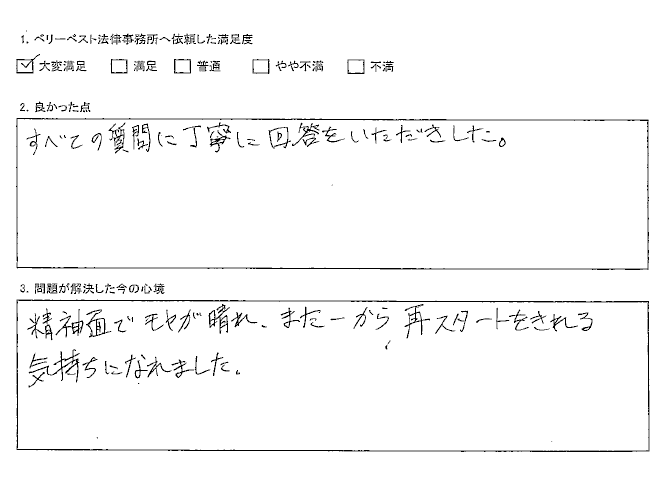 1. ベリーベスト法律事務所へ依頼した満足度
☑ 大変満足 □ 満足 □ 普通 □ やや不満 □ 不満
2. 良かった点
すべての質問に丁寧に回答をいただきました。
3. 問題が解決した今の心境
精神面でモヤが晴れ、また一から再スタートをきれる
気持ちになれました。